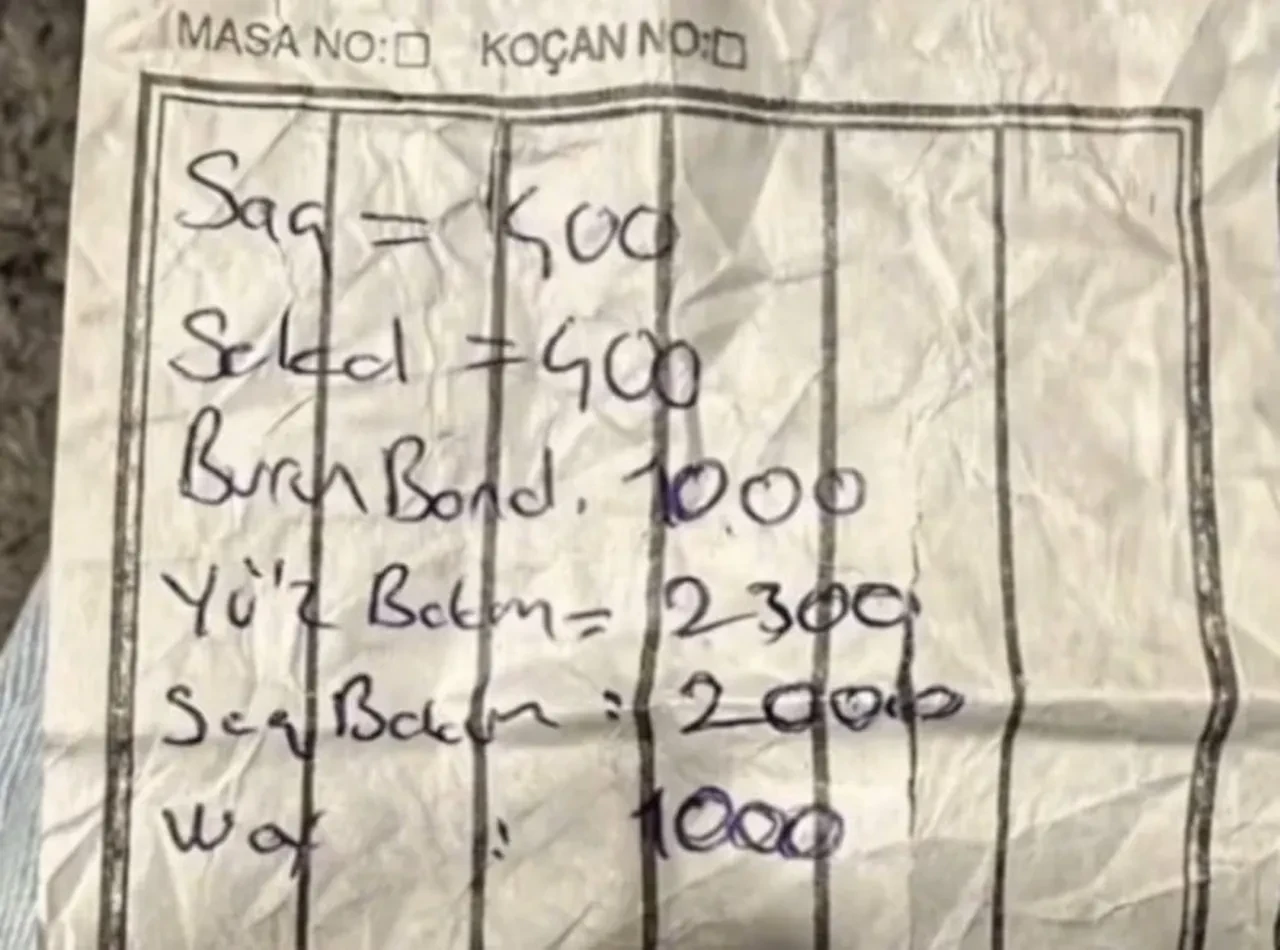 MASA NO:□ KOÇAN NO:□
Saç = 500
Sakal = 500
Burun Band. 1000
Yüz Bakım = 2300
Saç Bakım : 2000
Wax : 1000